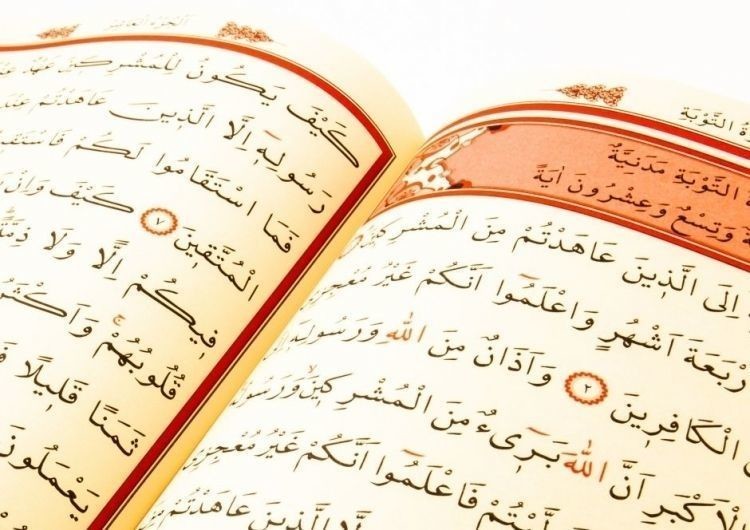 التَّوْبَةِ
التَّوْبَةِ مَدَنِيَّةٌ
وَتِسْعٌ وَعِشْرُونَ اٰيَةً
اِلَى الَّذِينَ عَاهَدْتُمْ مِنَ الْمُشْرِكِينَ
اَرْبَعَةَ اَشْهُرٍ وَاعْلَمُوا اَنَّكُمْ غَيْرُ مُعْجِزِي
الْكَافِرِينَ ٢ وَاَذَانٌ مِنَ اللّٰهِ وَرَسُولِهِ
الْاَكْبَرِ اَنَّ اللّٰهَ بَرِيءٌ مِنَ الْمُشْرِكِينَ وَرَسُولُهُ
فَاعْلَمُوا اَنَّكُمْ غَيْرُ مُعْجِزِي
الَّذِينَ عَاهَدْتُمْ
الْجُزْءُ الْعَاشِرُ
كَيْفَ يَكُونُ لِلْمُشْرِكِينَ عَهْدٌ عِنْدَ
رَسُولِهِ اِلَّا الَّذِينَ عَاهَدْتُمْ عِنْدَ
فَمَا اسْتَقَامُوا لَكُمْ فَاسْتَقِيمُوا
الْمُتَّقِينَ ٧ كَيْفَ وَاِنْ
فِيكُمْ اِلًّا وَلَا ذِمَّةً
قُلُوبُهُمْ وَاَكْثَرُ
ثَمَنًا قَلِيلًا
يَعْمَلُونَ